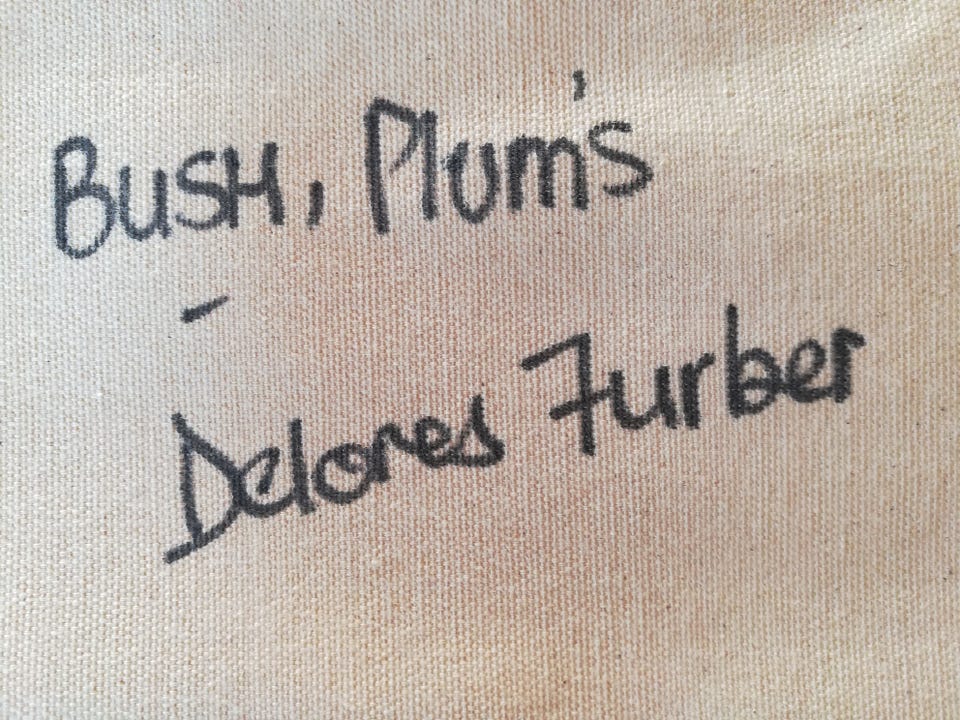 Bush, Plum's
-
Delores Furber